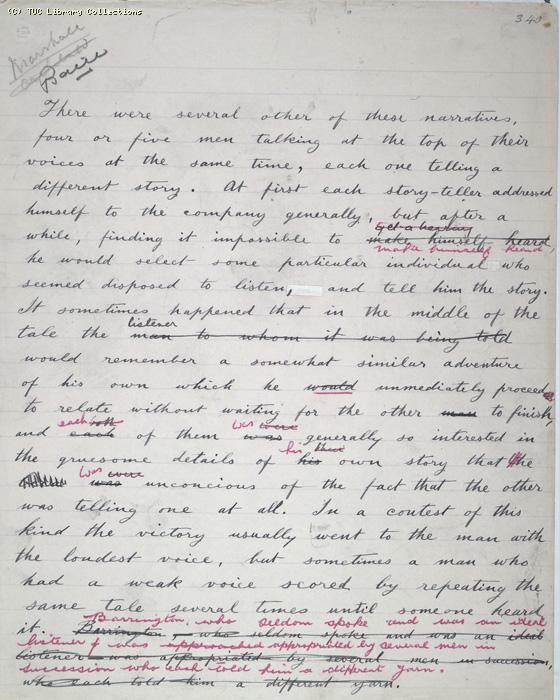 (C) TUC Library Collections
340
Marshall
Barrie
There were several other of these narratives,
four or five men talking at the top of their
voices at the same time, each one telling a
different story. At first each story-teller addressed
himself to the company generally, but after a
Get a hearing
while, finding it impossible to make himself heard,
make himself heard
he would select some particular individual who
seemed disposed to listen, and tell him the story.
It sometimes happened that in the middle of the
listener
tale the man to whom it was being told
would remember a somewhat similar adventure
of his own which he would immediately proceed
to relate without waiting for the other man to finish,
each both was were
and each of them was generally so interested in
his their
the gruesome details of his own story that he
was were
was unconcious of the fact that the other
was telling one at all. In a contest of this
kind the victory usually went to the man with
the loudest voice, but sometimes a man who
had a weak voice scored by repeating the
same tale several times until someone heard
Barrington, who seldom spoke and was an ideal
it. Barrington, who seldom spoke and was an ideal
listener was approached appropriated by several men in
listener was appropriated by several men in succession,
succession who each told him a different yarn.
who each told him a different yarn.